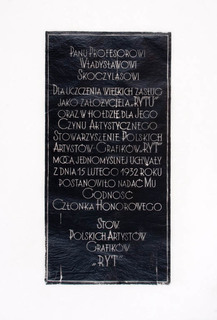 PANU PROFESOROWI
WŁADYSŁAWOWI
SKOCZYLASOWI
DLA UCZCZENIA WIELKICH ZASŁUG
JAKO ZAŁOŻYCIELA „RYTU”
ORAZ W HOŁDZIE DLA JEGO
CZYNU ARTYSTYCZNEGO
STOWARZYSZENIE POLSKICH
ARTYSTÓW-GRAFIKÓW „RYT”
MOCĄ JEDNOMYŚLNEJ UCHWAŁY
Z DNIA 15 LUTEGO 1932 ROKU
POSTANOWIŁO NADAĆ MU
GODNOŚĆ
CZŁONKA HONOROWEGO
STOW.
POLSKICH ARTYSTÓW
GRAFIKÓW
„RYT”